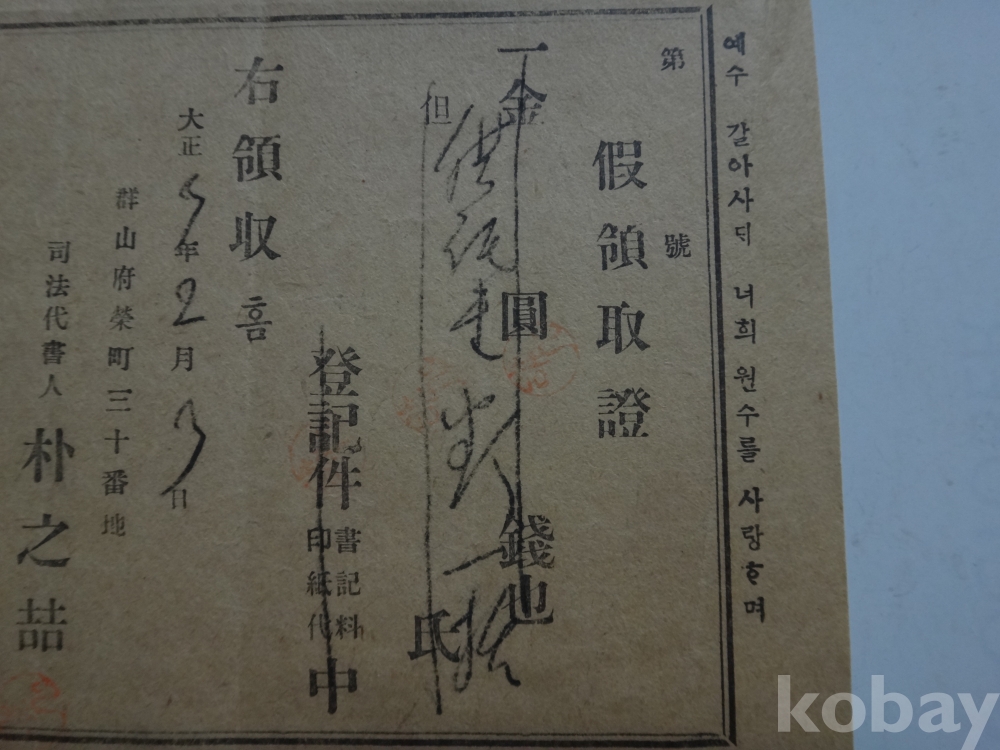 예수 갈아사ᄃᆡ 너희 원수를 사랑ᄒᆞ며
第 號
假領取證
一金 圓 錢也
但 氏
登記件 書記料 印紙代 中
右領収홈
大正 年 2 月 3 日
群山府榮町三十番地
司法代書人 朴之喆
kobay